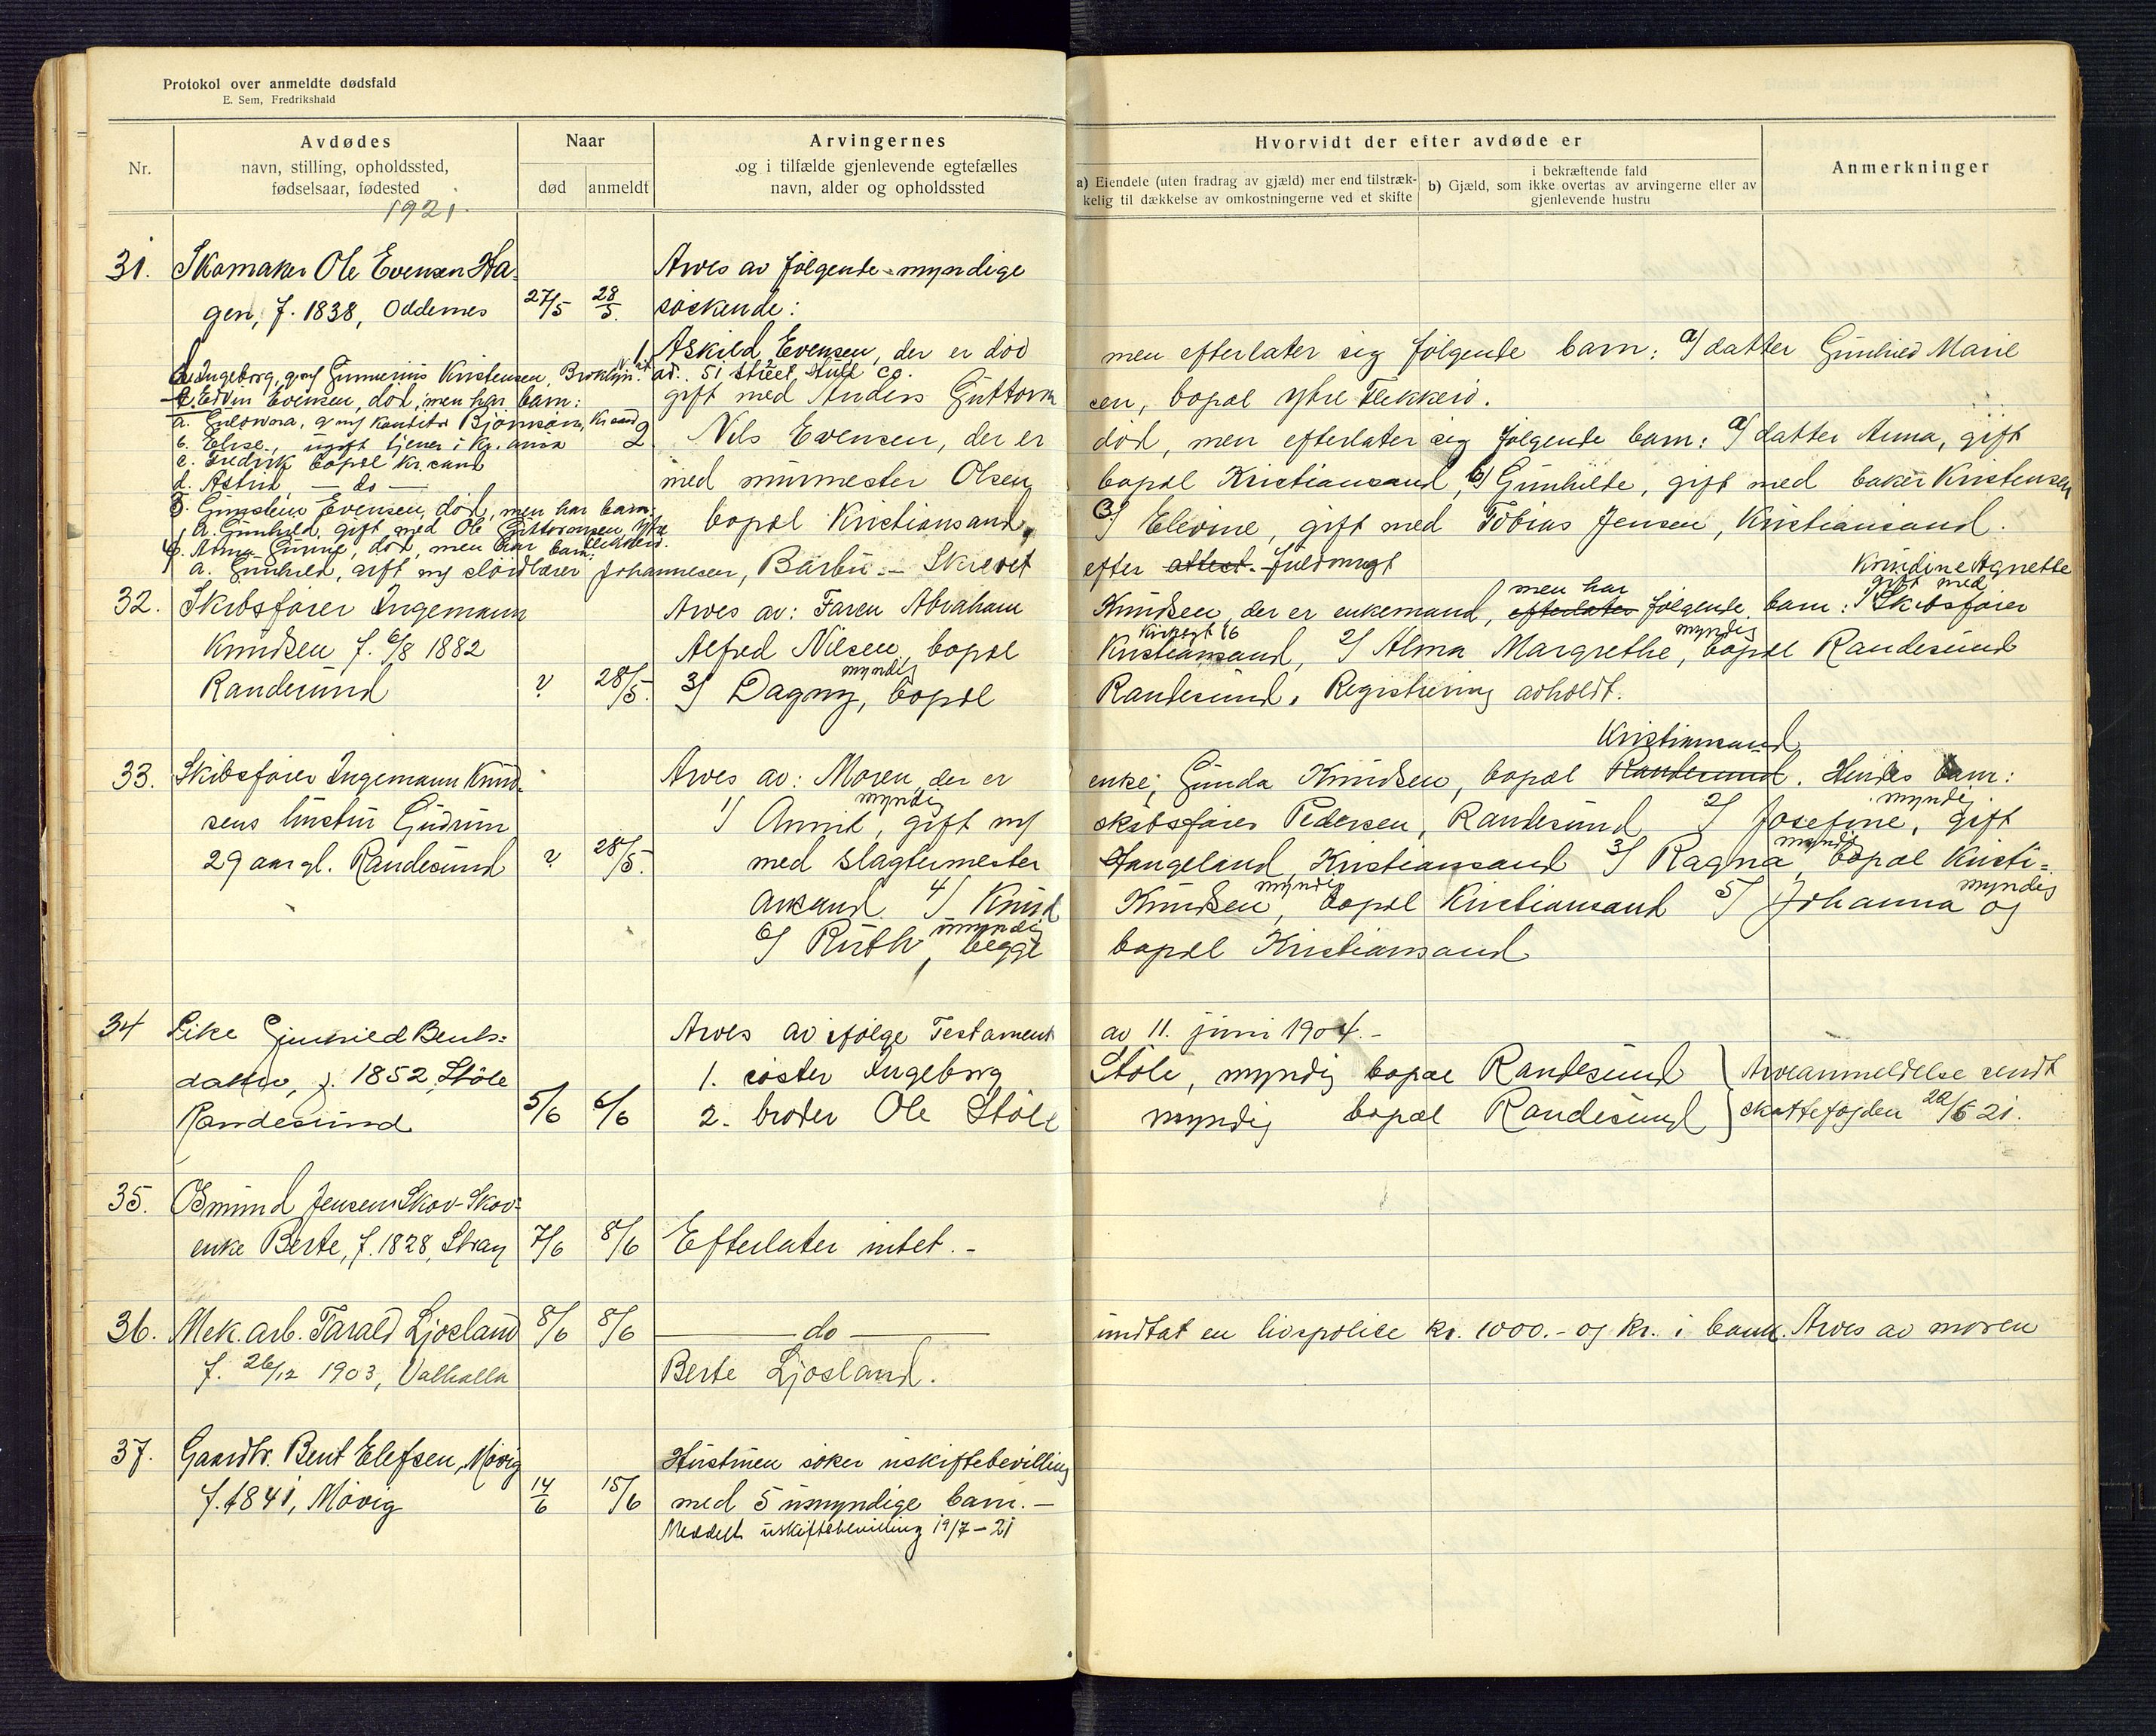 Protokol over anmeldte dødsfald
E. Sem, Fredrikshald
Nr.
Avdødes
navn, stilling, opholdssted,
fødselsaar, fødested
Naar
død
anmeldt
Arvingernes
og i tilfælde gjenlevende egtefælles
navn, alder og opholdssted
Hvorvidt der efter avdøde er
a) Eiendele (uten fradrag av gjæld) mer end tilstræk-
kelig til dækkelse av omkostningerne ved et skifte
i bekræftende fald
b) Gjæld, som ikke overtas av arvingerne eller av
gjenlevende hustru
Anmerkninger
1921.
31. Skomaker Ole Evensen Ha- Arves av følgende myndige
gen, f. 1838, Oddernes 27/5 28/5. søskende:
1. Askild Evensen, der er död men efterlater sig følgende barn: a/ datter Gunhild Marie
Ingeborg, g. m/ Gunnerius Kristensen, Broklyn. ad. 51 Street
gift med Anders Guttorm sen, bopæl Ytre Flekkerö.
Edvin Evensen, död, men har barn:
a. Guldvora, g m/ Konditor Björnson, Kr.sand
2 Nils Evensen, der er död, men efterlater sig følgende barn: a/ datter Anna, gift
b. Elise, ugift tjener i
c. Fredrik bopæl Kr.sand
d. Astrid — do —
med murmester Olsen, bopæl Kristiansand, b/ Gunhilde, gift med baker Kristensen
3. Gunstein Evensen, död, men har barn:
bopæl Kristiansand. 3/ Elevine, gift med Tobias Jensen, Kristiansand.
a. Gunhild, gift med Ole Guttormsen Ytre Flekkerö.
4. Anna Gurine, död, men har barn:
a. Gunhild, gift m/ Johannesen, Barbu. – Skrevet efter attest. fuldmagt
32. Skibsfører Ingemann Arves av: Faren Abraham Knudsen, der er enkemand, efterlater men har følgende barn: 1/ Kundine Agnethe gift med Skibsfører
Knudsen f. 6/8 1882 Alfred Nilsen, bopæl Kristiansand, 2/ Alma Margrethe, myndig bopæl Randesund
Randesund ? 28/5. 3/ Dagny, myndig bopæl Randesund. Registrering avholdt.
33. Skibsfører Ingemann Knud- Arves av: Moren, der er enke, Gunda Knudsen, bopæl Randesund Kristiansand. Hendes barn:
sens hustru Gudrun 1/ Annit, myndig gift m/ skibsfører Pedersen, Randesund 2/ Josefine, myndig gift
29 aar gl. Randesund ? 28/5. med slagtermester Haugeland, Kristiansand 3/ Ragna, myndig bopæl Kristi-
ansand 4/ Knud Knudsen, myndig bopæl Kristiansand 5/ Johanna myndig og
6/ Ruth, myndig begge bopæl Kristiansand
34 Pike Gunhild Bents- Arves av ifølge Testament av 11. juni 1904.-
datter, f. 1852, Støle 1. søster Ingeborg Støle, myndig bopæl Randesund Arveanmeldelse sendt
Randesund 5/6 6/6 2. broder Ole Støle myndig bopæl Randesund skattefogden 20/6 21.
35. Osmund Jensen Skov-Skov-
enke Berte, f. 1828, Stray 7/6 8/6 Efterlater intet.-
36. Mek. arb. Tarald Ljosland 8/6 8/6 — do — undtat en livspolice kr. 1000.- og kr. i bank. Arves av moren
f. 26/12 1903, Valhalla Berte Ljosland.
37. Gaardbr. Bent Elefsen, Møvig Hustruen søker uskiftebevilling
f. 1841, Møvig 14/6 15/6 med 5 umyndige barn.-
Meddelt uskiftebevilling 19/7-21